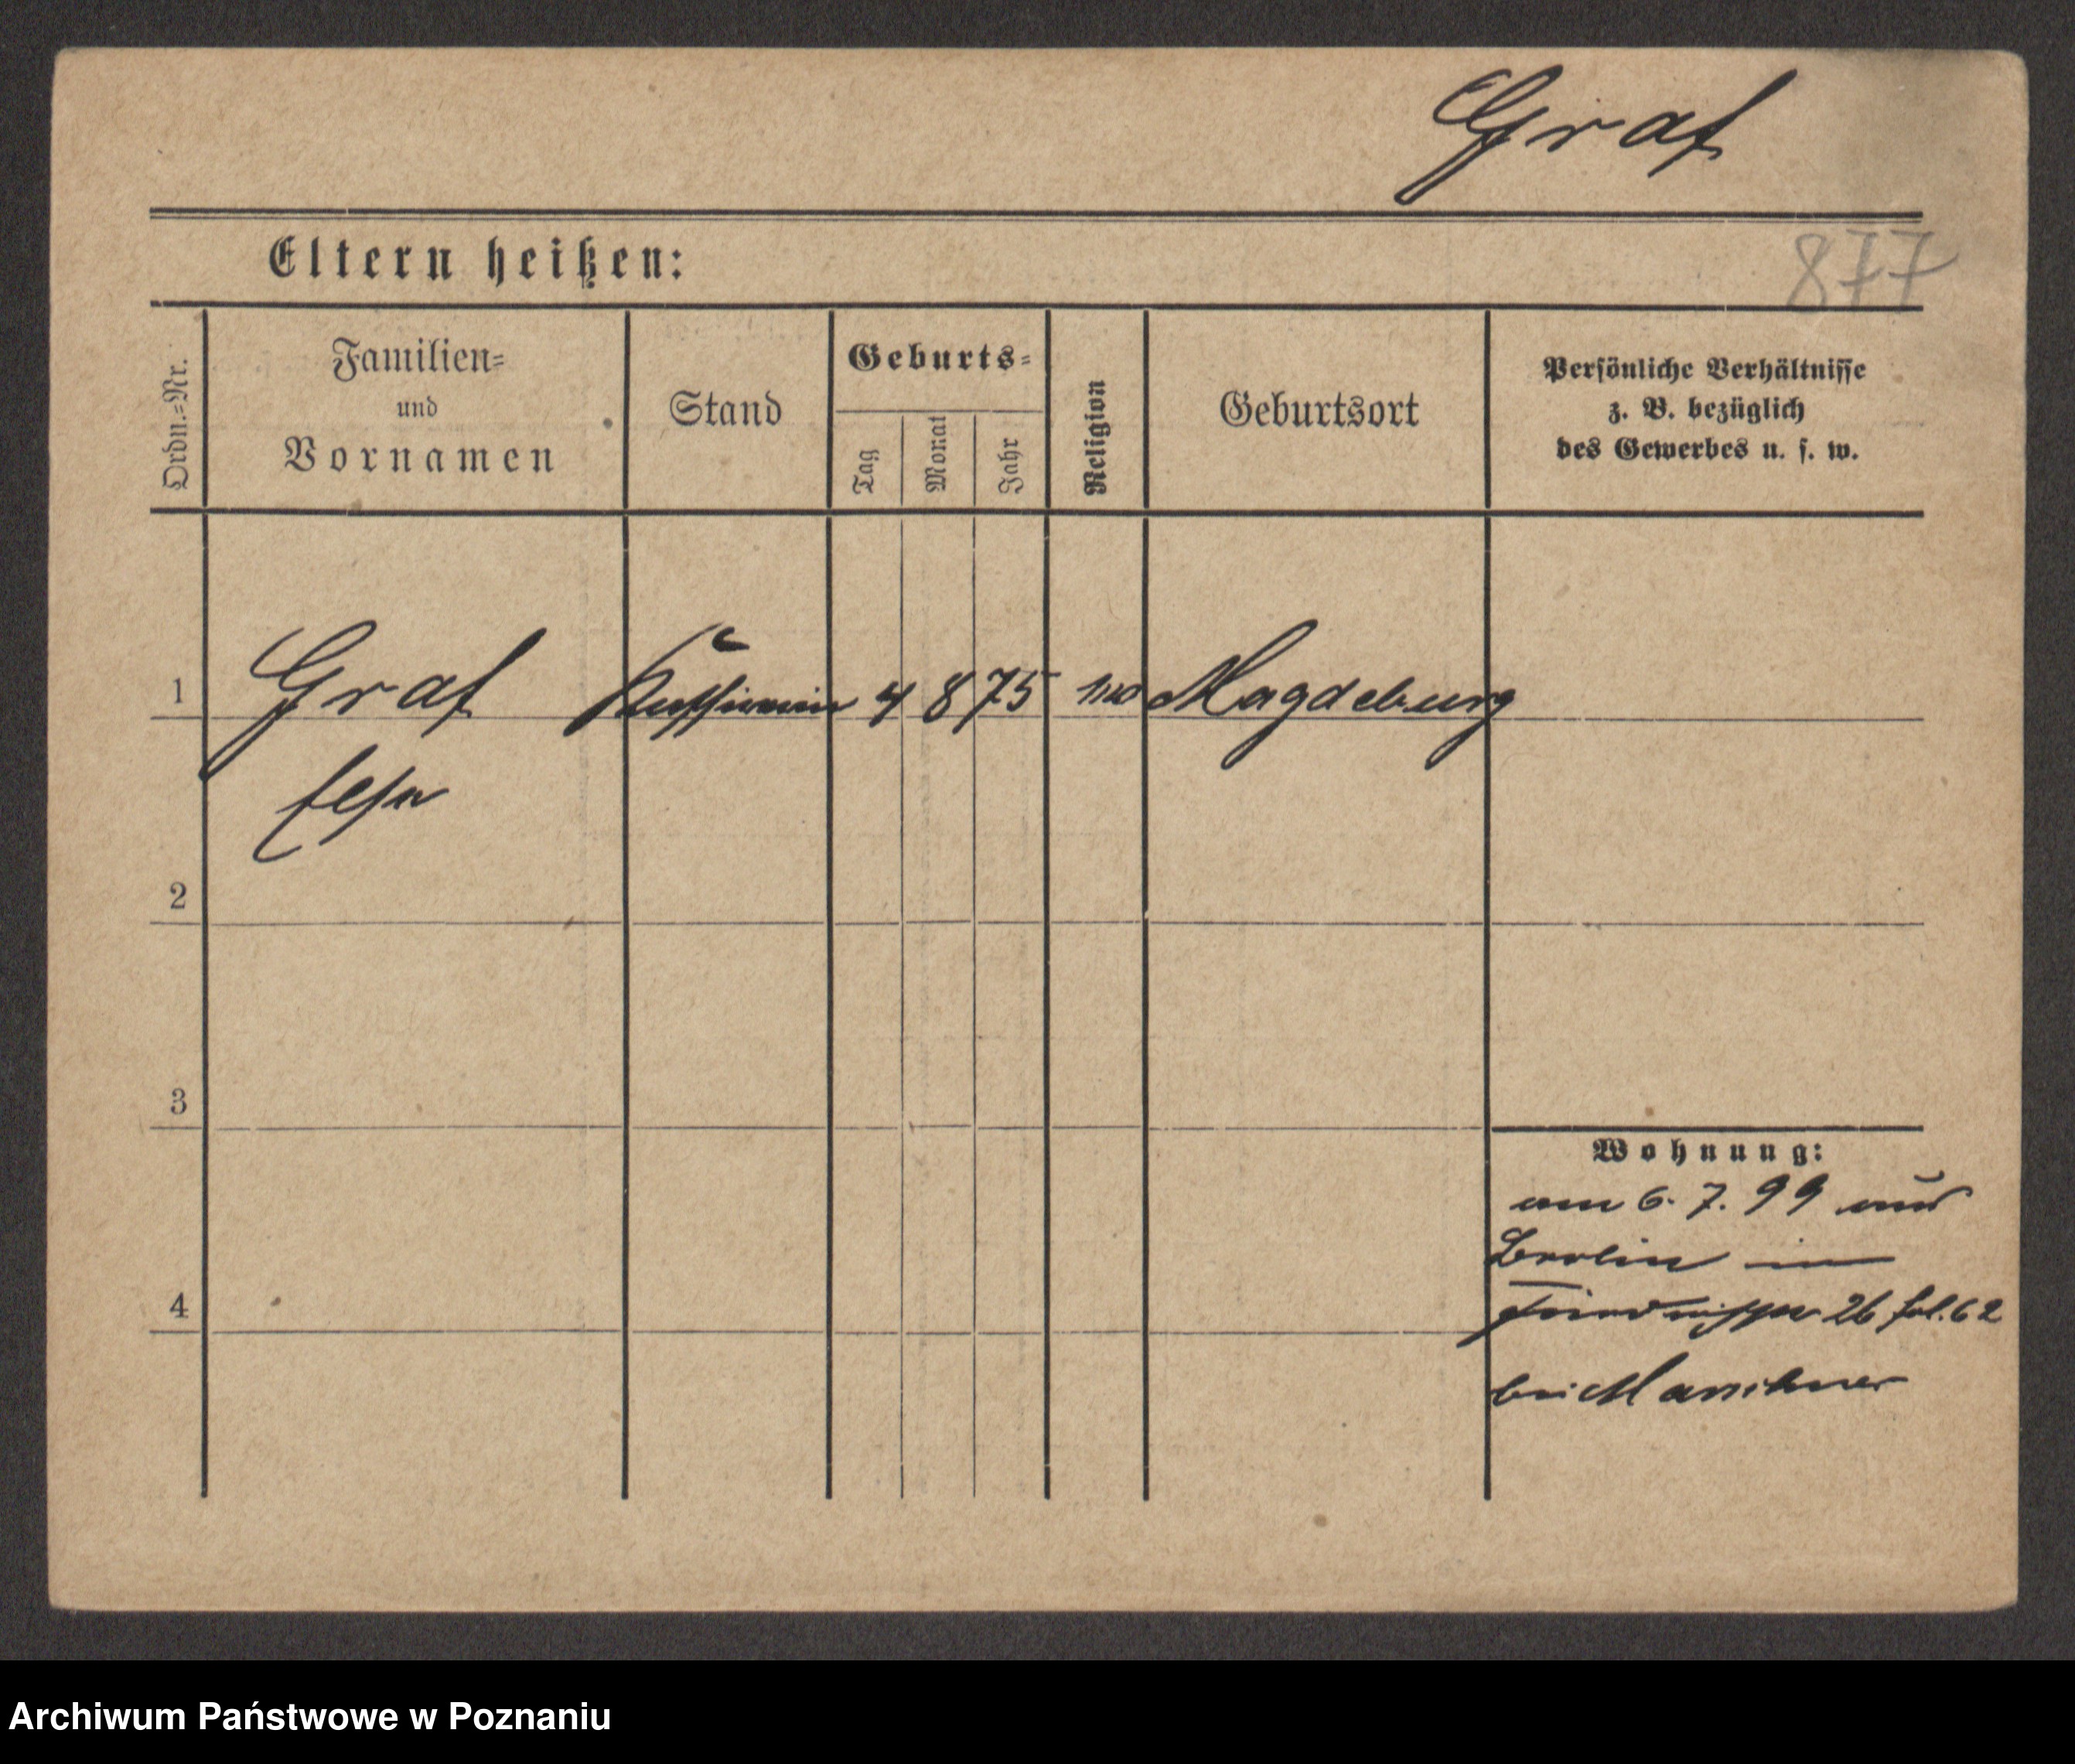 Graf
Eltern heißen:
877
Ordn.=Nr.
Familien=
und
Vornamen
Stand
Geburts=
Tag
Monat
Jahr
Religion
Geburtsort
Persönliche Verhältnisse
z. B. bezüglich
des Gewerbes u. s. w.
1 Graf 4 8 75 Magdeburg
2
3
4
Wohnung:
am 6. 7. 99 aus
Berlin in
26 fol. 62
bei
Archiwum Państwowe w Poznaniu